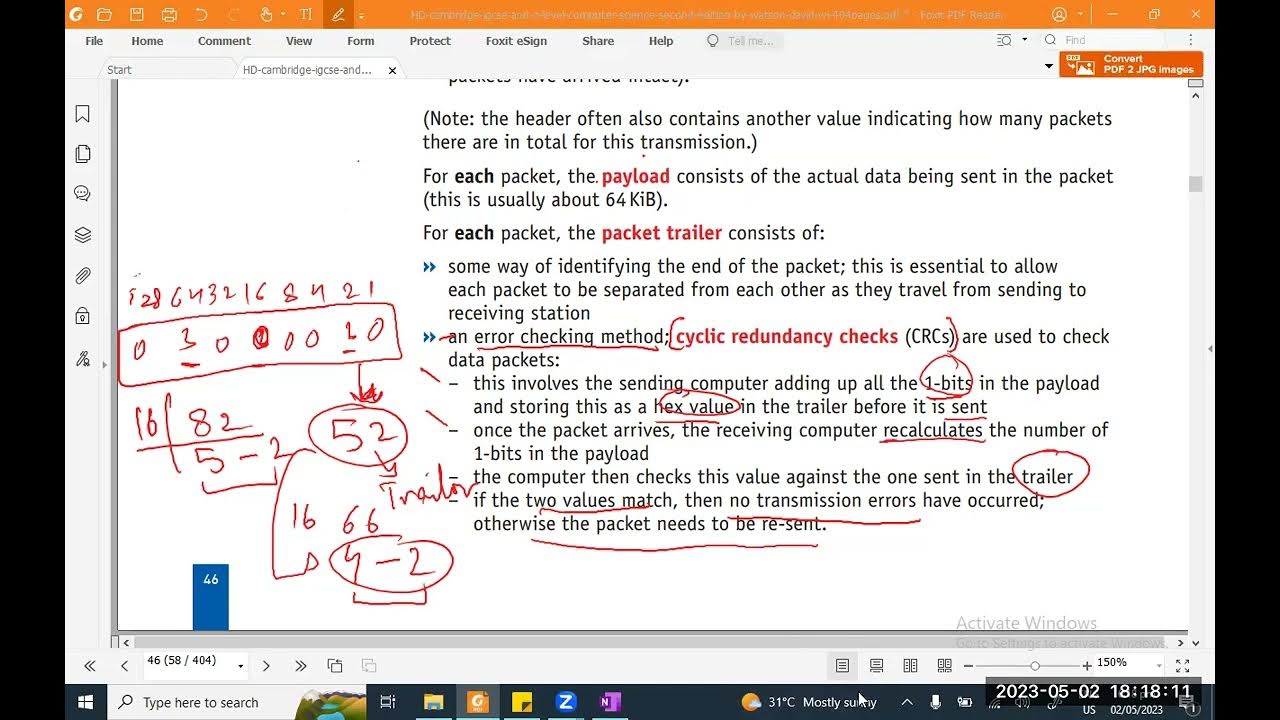 HD-cambridge-igcse-and-o-level-computer-science-second-edition-by-watson-david-wi-404pages.pdf * - Foxit PDF Reade...
File Home Comment View Form Protect Foxit eSign Share Help Tell me... Find
Start HD-cambridge-igcse-and... Convert
PDF 2 JPG Images
packets have arrived intact).
(Note: the header often also contains another value indicating how many packets
there are in total for this transmission.)
For each packet, the payload consists of the actual data being sent in the packet
(this is usually about 64 KiB).
For each packet, the packet trailer consists of:
» some way of identifying the end of the packet; this is essential to allow
each packet to be separated from each other as they travel from sending to
receiving station
» an error checking method; cyclic redundancy checks (CRCs) are used to check
data packets:
– this involves the sending computer adding up all the 1-bits in the payload
and storing this as a hex value in the trailer before it is sent
– once the packet arrives, the receiving computer recalculates the number of
1-bits in the payload
– the computer then checks this value against the one sent in the trailer
– if the two values match, then no transmission errors have occurred;
otherwise the packet needs to be re-sent.
128 64 32 16 8 4 2 1
16 82
5 – 2
52
Trailor
16 66
4 – 2
46
Activate Windows
Go to Settings to activate Windows.
46 (58 / 404) 150%
Type here to search 31°C Mostly sunny US 02/05/2023
2023-05-02 18:18:11